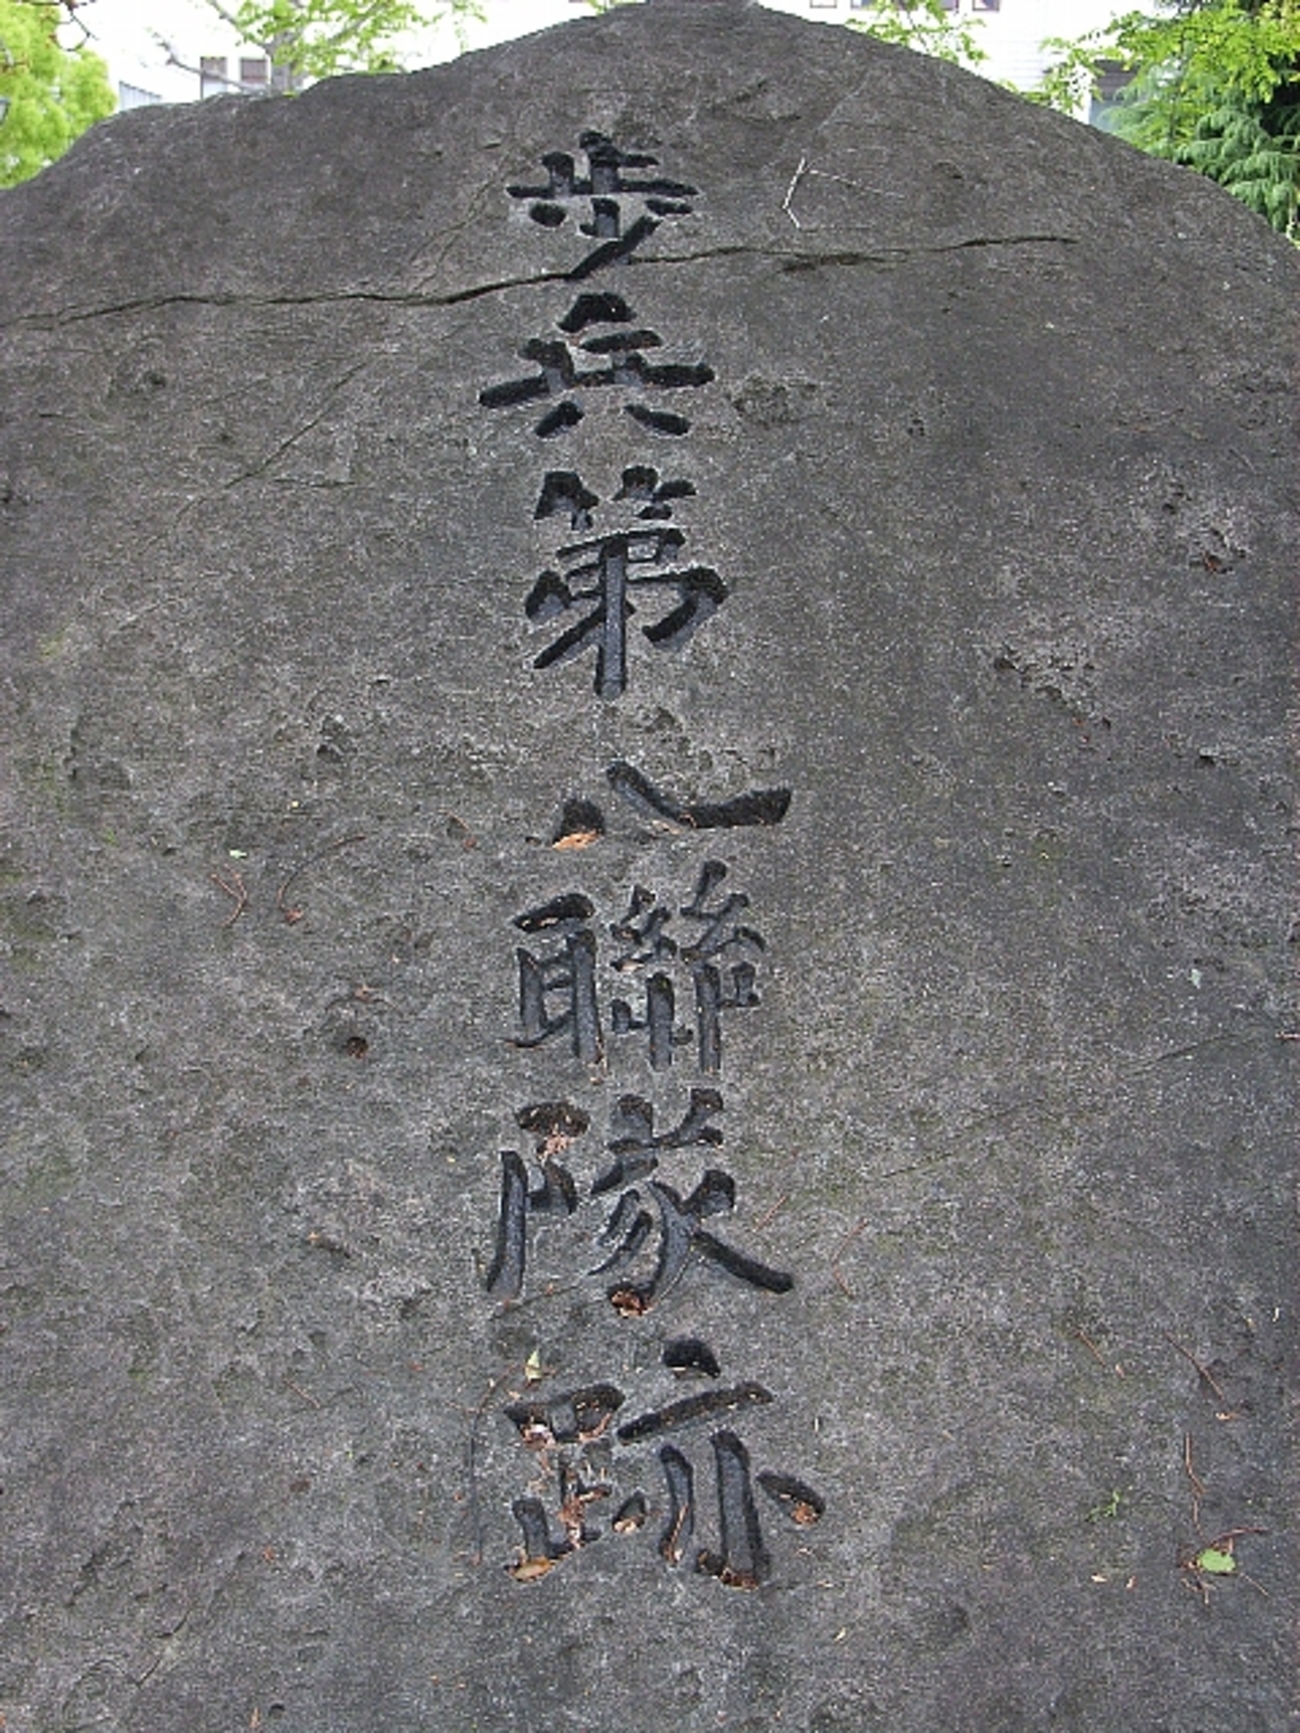 歩兵第八聯隊跡